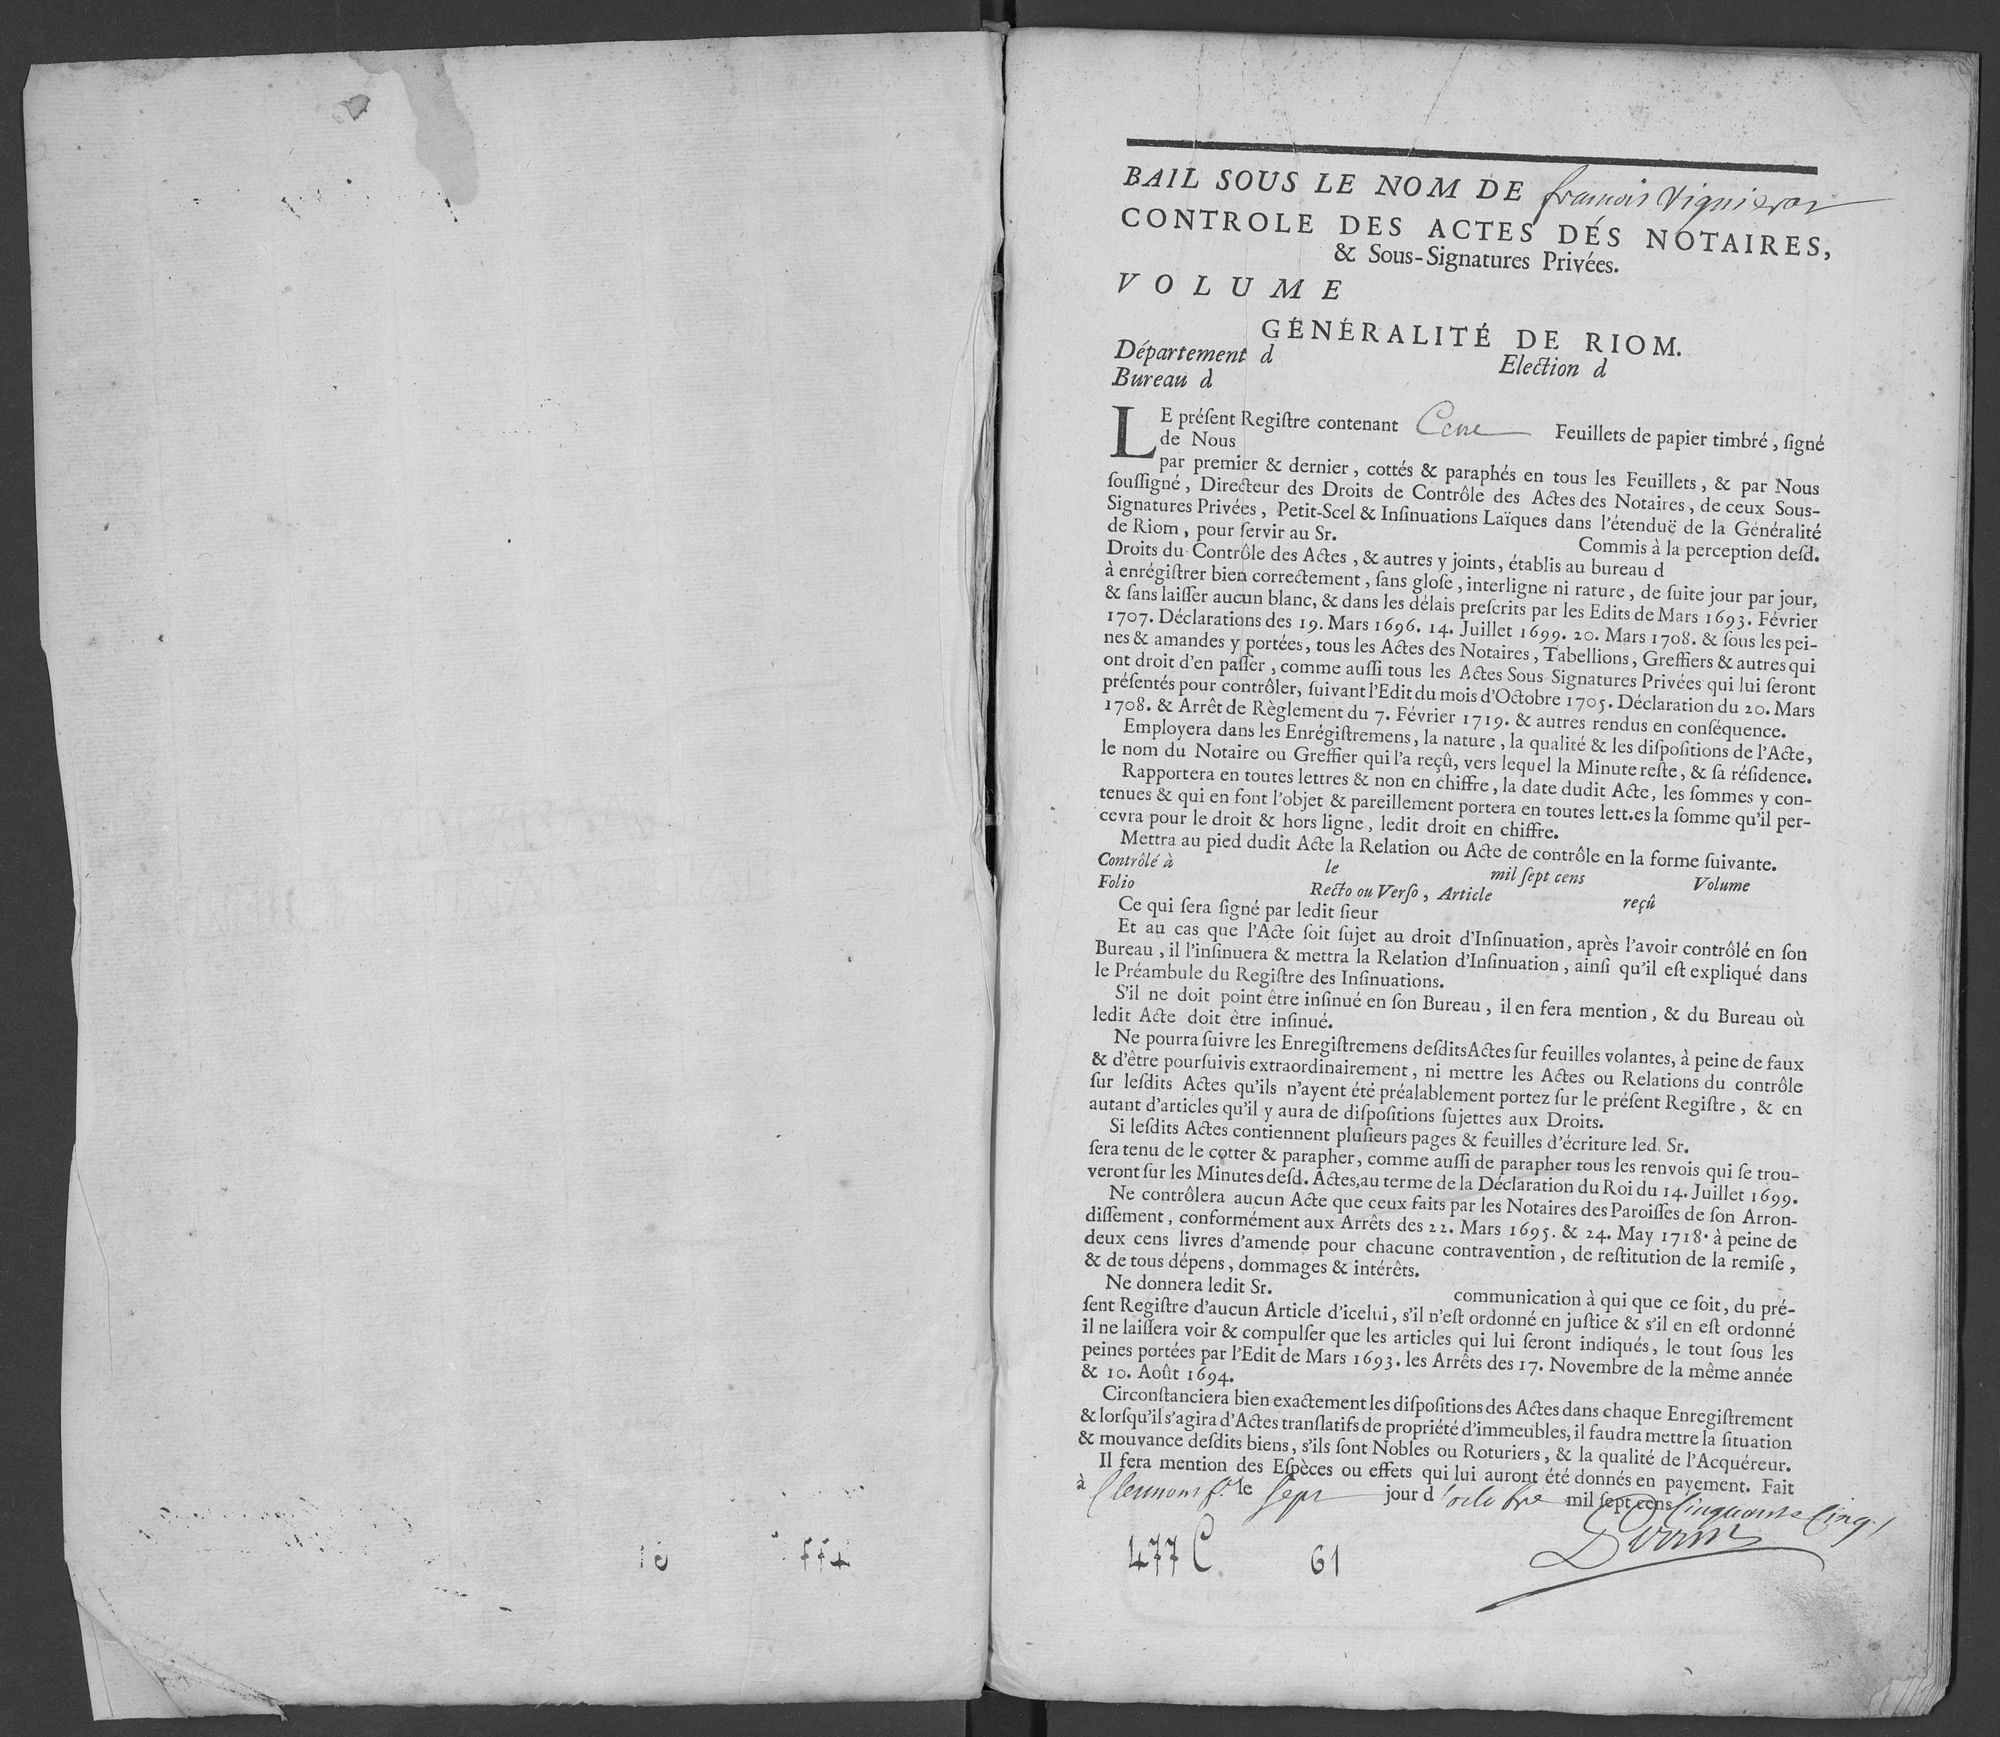 BAIL SOUS LE NOM DE francois Vignieron
CONTROLE DES ACTES DÉS NOTAIRES,
& Sous-Signatures Privées.
VOLUME
GÉNÉRALITÉ DE RIOM.
Département d Election d
Bureau d
LE préſent Regiſtre contenant Cent Feuillets de papier timbré, ſigné
de Nous
par premier & dernier, cottés & paraphés en tous les Feuillets, & par Nous
ſouſſigné, Directeur des Droits de Contrôle des Actes des Notaires, de ceux Sous-
Signatures Privées, Petit-Scel & Inſinuations Laïques dans l'étenduë de la Généralité
de Riom, pour ſervir au Sr. Commis à la perception deſd.
Droits du Contrôle des Actes, & autres y joints, établis au bureau d
à enrégiſtrer bien correctement, ſans gloſe, interligne ni rature, de ſuite jour par jour,
& ſans laiſſer aucun blanc, & dans les délais preſcrits par les Edits de Mars 1693. Février
1707. Déclarations des 19. Mars 1696. 14. Juillet 1699. 20. Mars 1708. & ſous les pei-
nes & amandes y portées, tous les Actes des Notaires, Tabellions, Greffiers & autres qui
ont droit d'en paſſer, comme auſſi tous les Actes Sous-Signatures Privées qui lui ſeront
préſentés pour contrôler, ſuivant l'Edit du mois d'Octobre 1705. Déclaration du 20. Mars
1708. & Arrêt de Règlement du 7. Février 1719. & autres rendus en conſéquence.
Employera dans les Enrégiſtremens, la nature, la qualité & les diſpoſitions de l'Acte,
le nom du Notaire ou Greffier qui l'a reçû, vers lequel la Minute reſte, & ſa réſidence.
Rapportera en toutes lettres & non en chiffre, la date dudit Acte, les ſommes y con-
tenues & qui en font l'objet & pareillement portera en toutes lett.es la ſomme qu'il per-
cevra pour le droit & hors ligne, ledit droit en chiffre.
Mettra au pied dudit Acte la Relation ou Acte de contrôle en la forme ſuivante.
Contrôlé à le mil ſept cens Volume
Folio Recto ou Verſo, Article reçû
Ce qui ſera ſigné par ledit ſieur
Et au cas que l'Acte ſoit ſujet au droit d'Inſinuation, après l'avoir contrôlé en ſon
Bureau, il l'inſinuera & mettra la Relation d'Inſinuation, ainſi qu'il eſt expliqué dans
le Préambule du Regiſtre des Inſinuations.
S'il ne doit point être inſinué en ſon Bureau, il en fera mention, & du Bureau où
ledit Acte doit être inſinué.
Ne pourra ſuivre les Enregiſtremens deſdits Actes ſur feuilles volantes, à peine de faux
& d'être pourſuivis extraordinairement, ni mettre les Actes ou Relations du contrôle
ſur leſdits Actes qu'ils n'ayent été préalablement portez ſur le préſent Regiſtre, & en
autant d'articles qu'il y aura de diſpoſitions ſujettes aux Droits.
Si leſdits Actes contiennent pluſieurs pages & feuilles d'écriture led. Sr.
ſera tenu de le cotter & parapher, comme auſſi de parapher tous les renvois qui ſe trou-
veront ſur les Minutes deſd. Actes, au terme de la Déclaration du Roi du 14. Juillet 1699.
Ne contrôlera aucun Acte que ceux faits par les Notaires des Paroiſſes de ſon Arron-
diſſement, conformément aux Arrêts des 22. Mars 1695. & 24. May 1718. à peine de
deux cens livres d'amende pour chacune contravention, de reſtitution de la remiſe,
& de tous dépens, dommages & intérêts.
Ne donnera ledit Sr. communication à qui que ce ſoit, du pré-
ſent Regiſtre d'aucun Article d'icelui, s'il n'eſt ordonné en juſtice & s'il en eſt ordonné
il ne laiſſera voir & compulſer que les articles qui lui ſeront indiqués, le tout ſous les
peines portées par l'Edit de Mars 1693. les Arrêts des 17. Novembre de la même année
& 10. Août 1694.
Circonſtanciera bien exactement les diſpoſitions des Actes dans chaque Enregiſtrement
& lorſqu'il s'agira d'Actes tranſlatifs de propriété d'immeubles, il faudra mettre la ſituation
& mouvance deſdits biens, s'ils ſont Nobles ou Roturiers, & la qualité de l'Acquéreur.
Il fera mention des Eſpèces ou effets qui lui auront été donnés en payement. Fait
à Clermont fd. le Sept jour d'octobre mil ſept cens Cinquante Cinq./
477 C 61